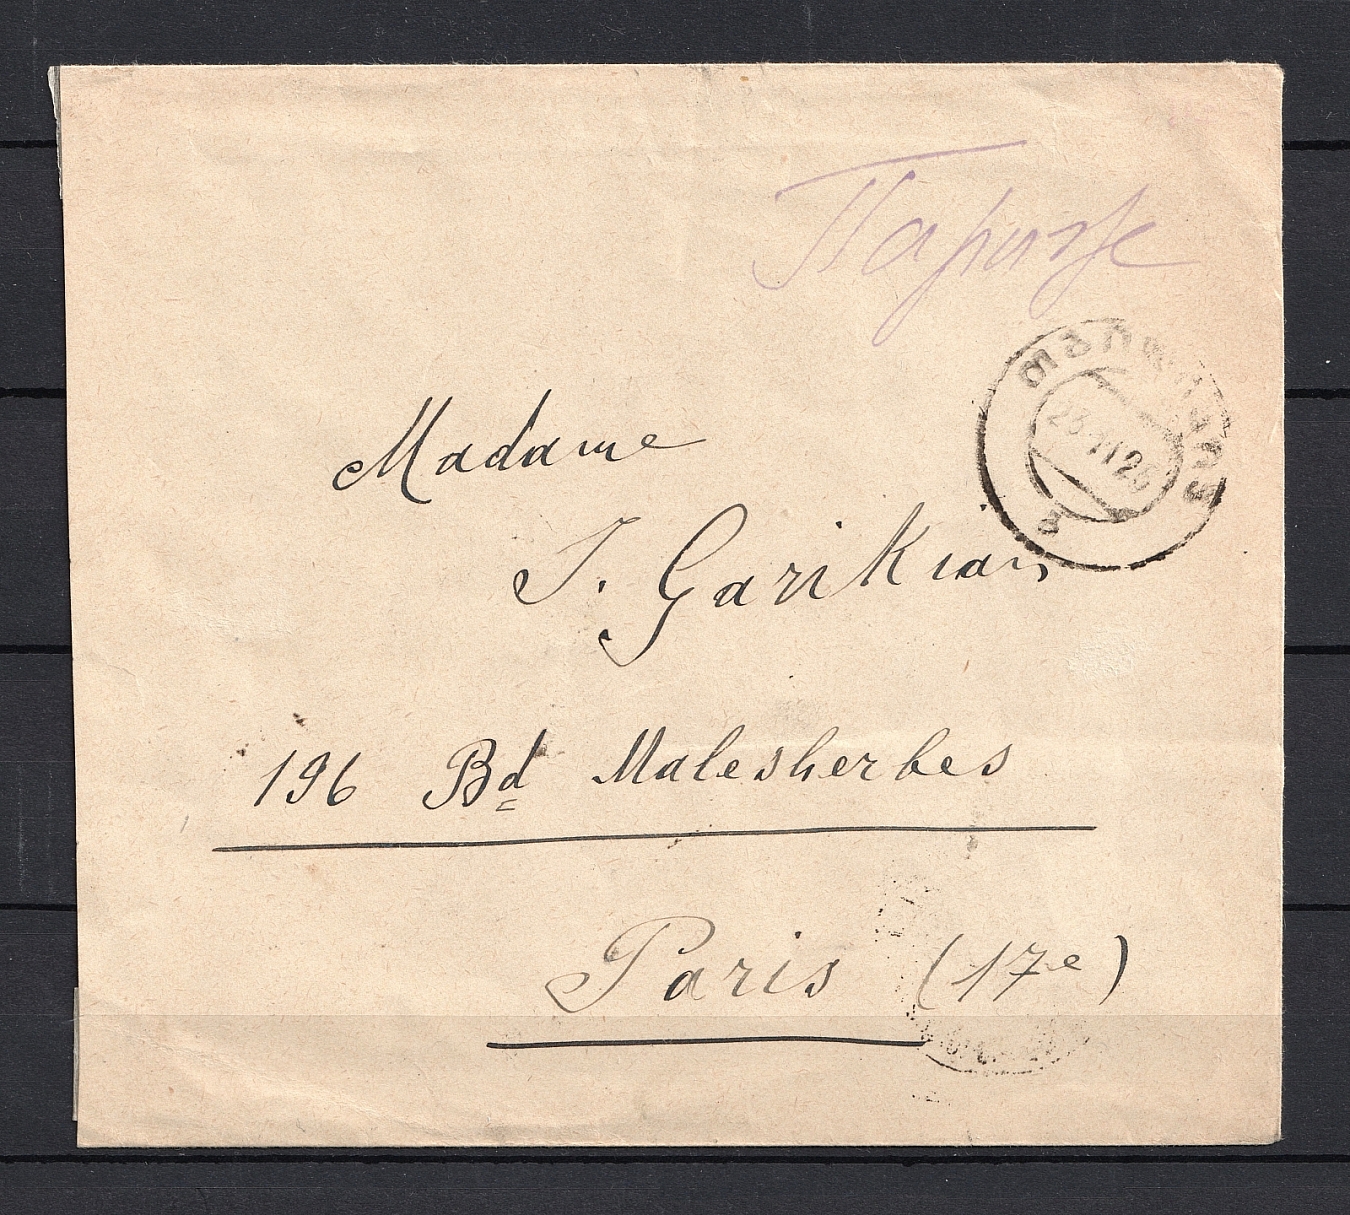 Париж
Madame
J. Garikian
196 Bd Malesherbes
Paris (17e)